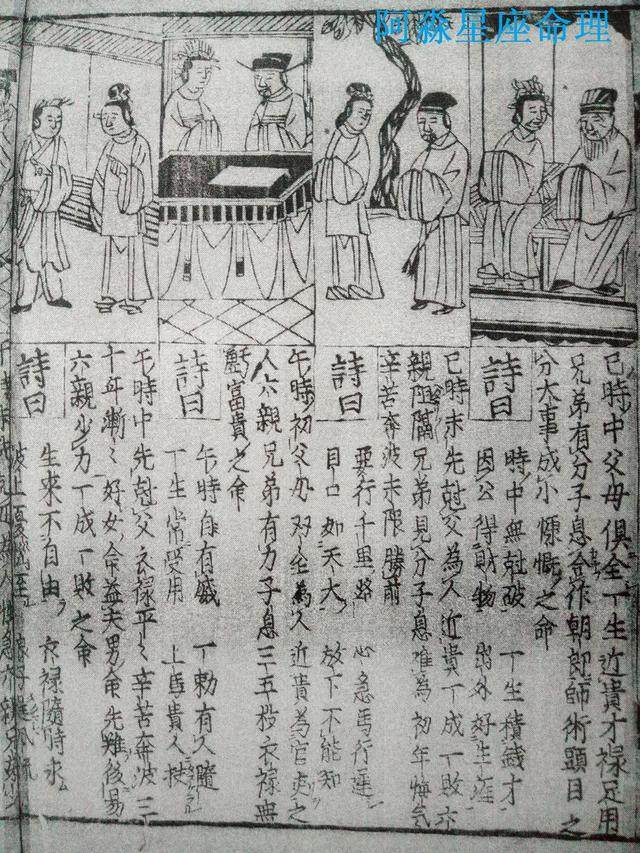 阿淼星座命理
巳時中父母俱全丁生近貴才禄足用
兄弟有分子息合作朝郎師術頭目之
分大事成小慷慨之命
詩曰
時中無尅破 丁生積錢才
因公得財物 出外好生涯
巳時末先尅父為人近貴丁成丁敗六
親隔兄弟見分子息难為初年悔氣
辛苦奔波末限勝前
詩曰
要行千里路 心急馬行遲
目口如天大 放下不能知
午時初父母双全為人近貴為官吏之
人六親兄弟有力子息三五投衣禄無
虧富貴之命
詩曰
午時自有錢 丁勅有人隨
丁生常受用 上馬貴人扶
午時中先尅父衣禄平〻辛苦奔波三
十年漸〻好女命益夫男命先难後易
六親少力丁成丁敗之命
詩曰
生來不自由 衣禄隨時求